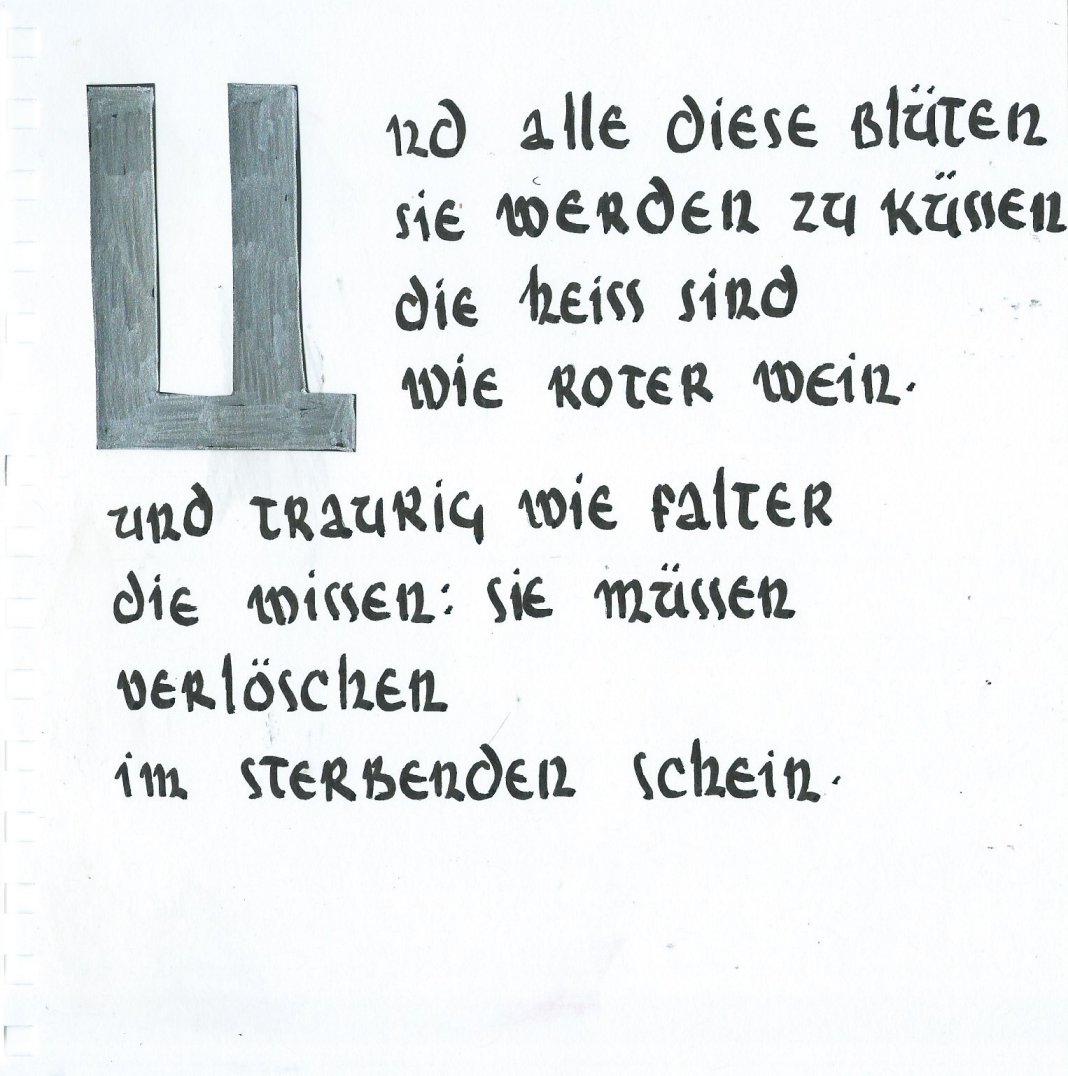 Und alle diese Blüten
sie werden zu küssen
die heiss sind
wie roter wein.
und traurig wie falter
die wissen: sie müssen
verlöschen
im sterbenden schein.